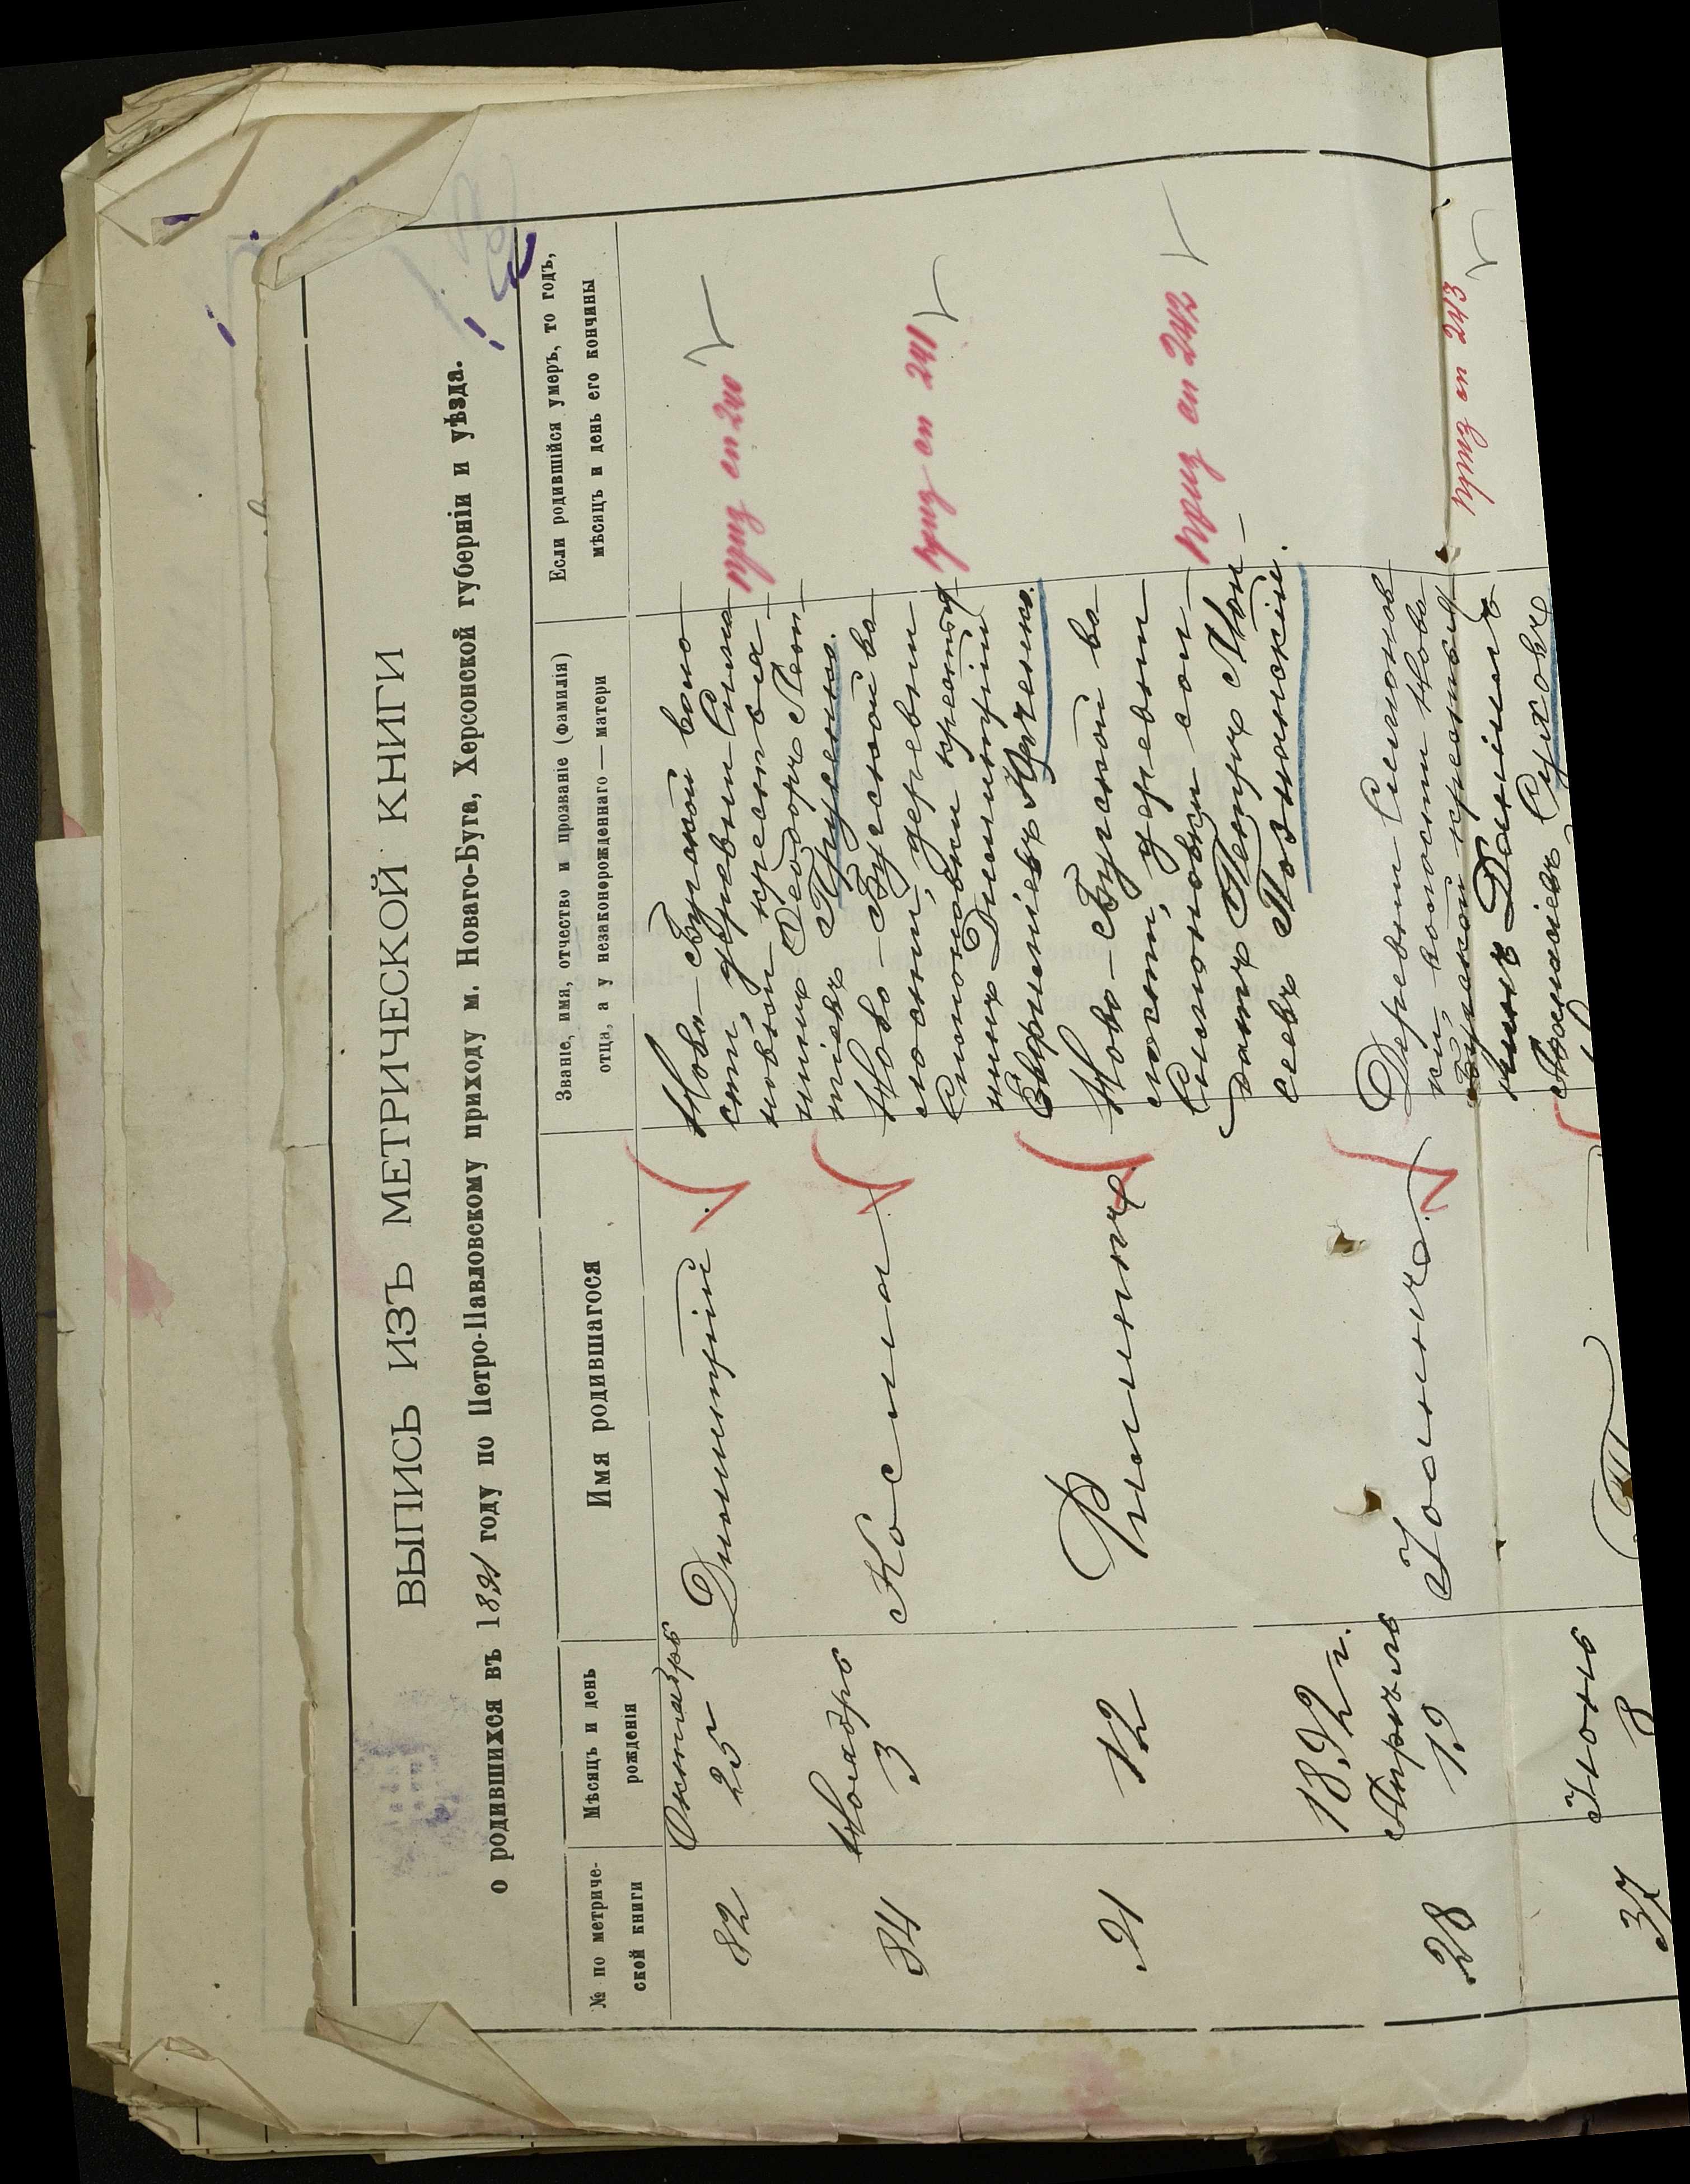 ВЫПИСЬ ИЗЪ МЕТРИЧЕСКОЙ КНИГИ
о родившихся въ 1891 году по Петро-Павловскому приходу м. Новаго-Буга, Херсонской губерніи и уѣзда.
№ по метриче-
ской книги
Мѣсяцъ и день
рожденія
Имя родившагося
Званіе, имя, отчество и прозваніе (фамилія)
отца, а у незаконорожденнаго — матери
Если родившійся умеръ, то годъ,
мѣсяцъ и день его кончины
82
Октябрь
25
Димитрій
Ново-Бугской воло-
сти, деревни Симо-
новки крестья-
нинъ Ѳеодоръ Леон
тіевъ
приз сп 240
84
Ноябрь
3
Косма
Ново-Бугской во
лости, деревни
Симоновки крестья
нинъ Димитрій
приз сп 241
91
12
Филиппъ
Ново-Бугской во
лости, деревни
Симоновки сол-
датъ Петръ Мои-
сеевъ Познанскій.
приз сп 242
1892 г.
28
Апрѣль
19
Іоаннъ
Деревни Симонов
ки, волости Ново
Бугской крестья
нинъ Даніилъ
Суховъ
приз сп 243
37
Іюнь
8